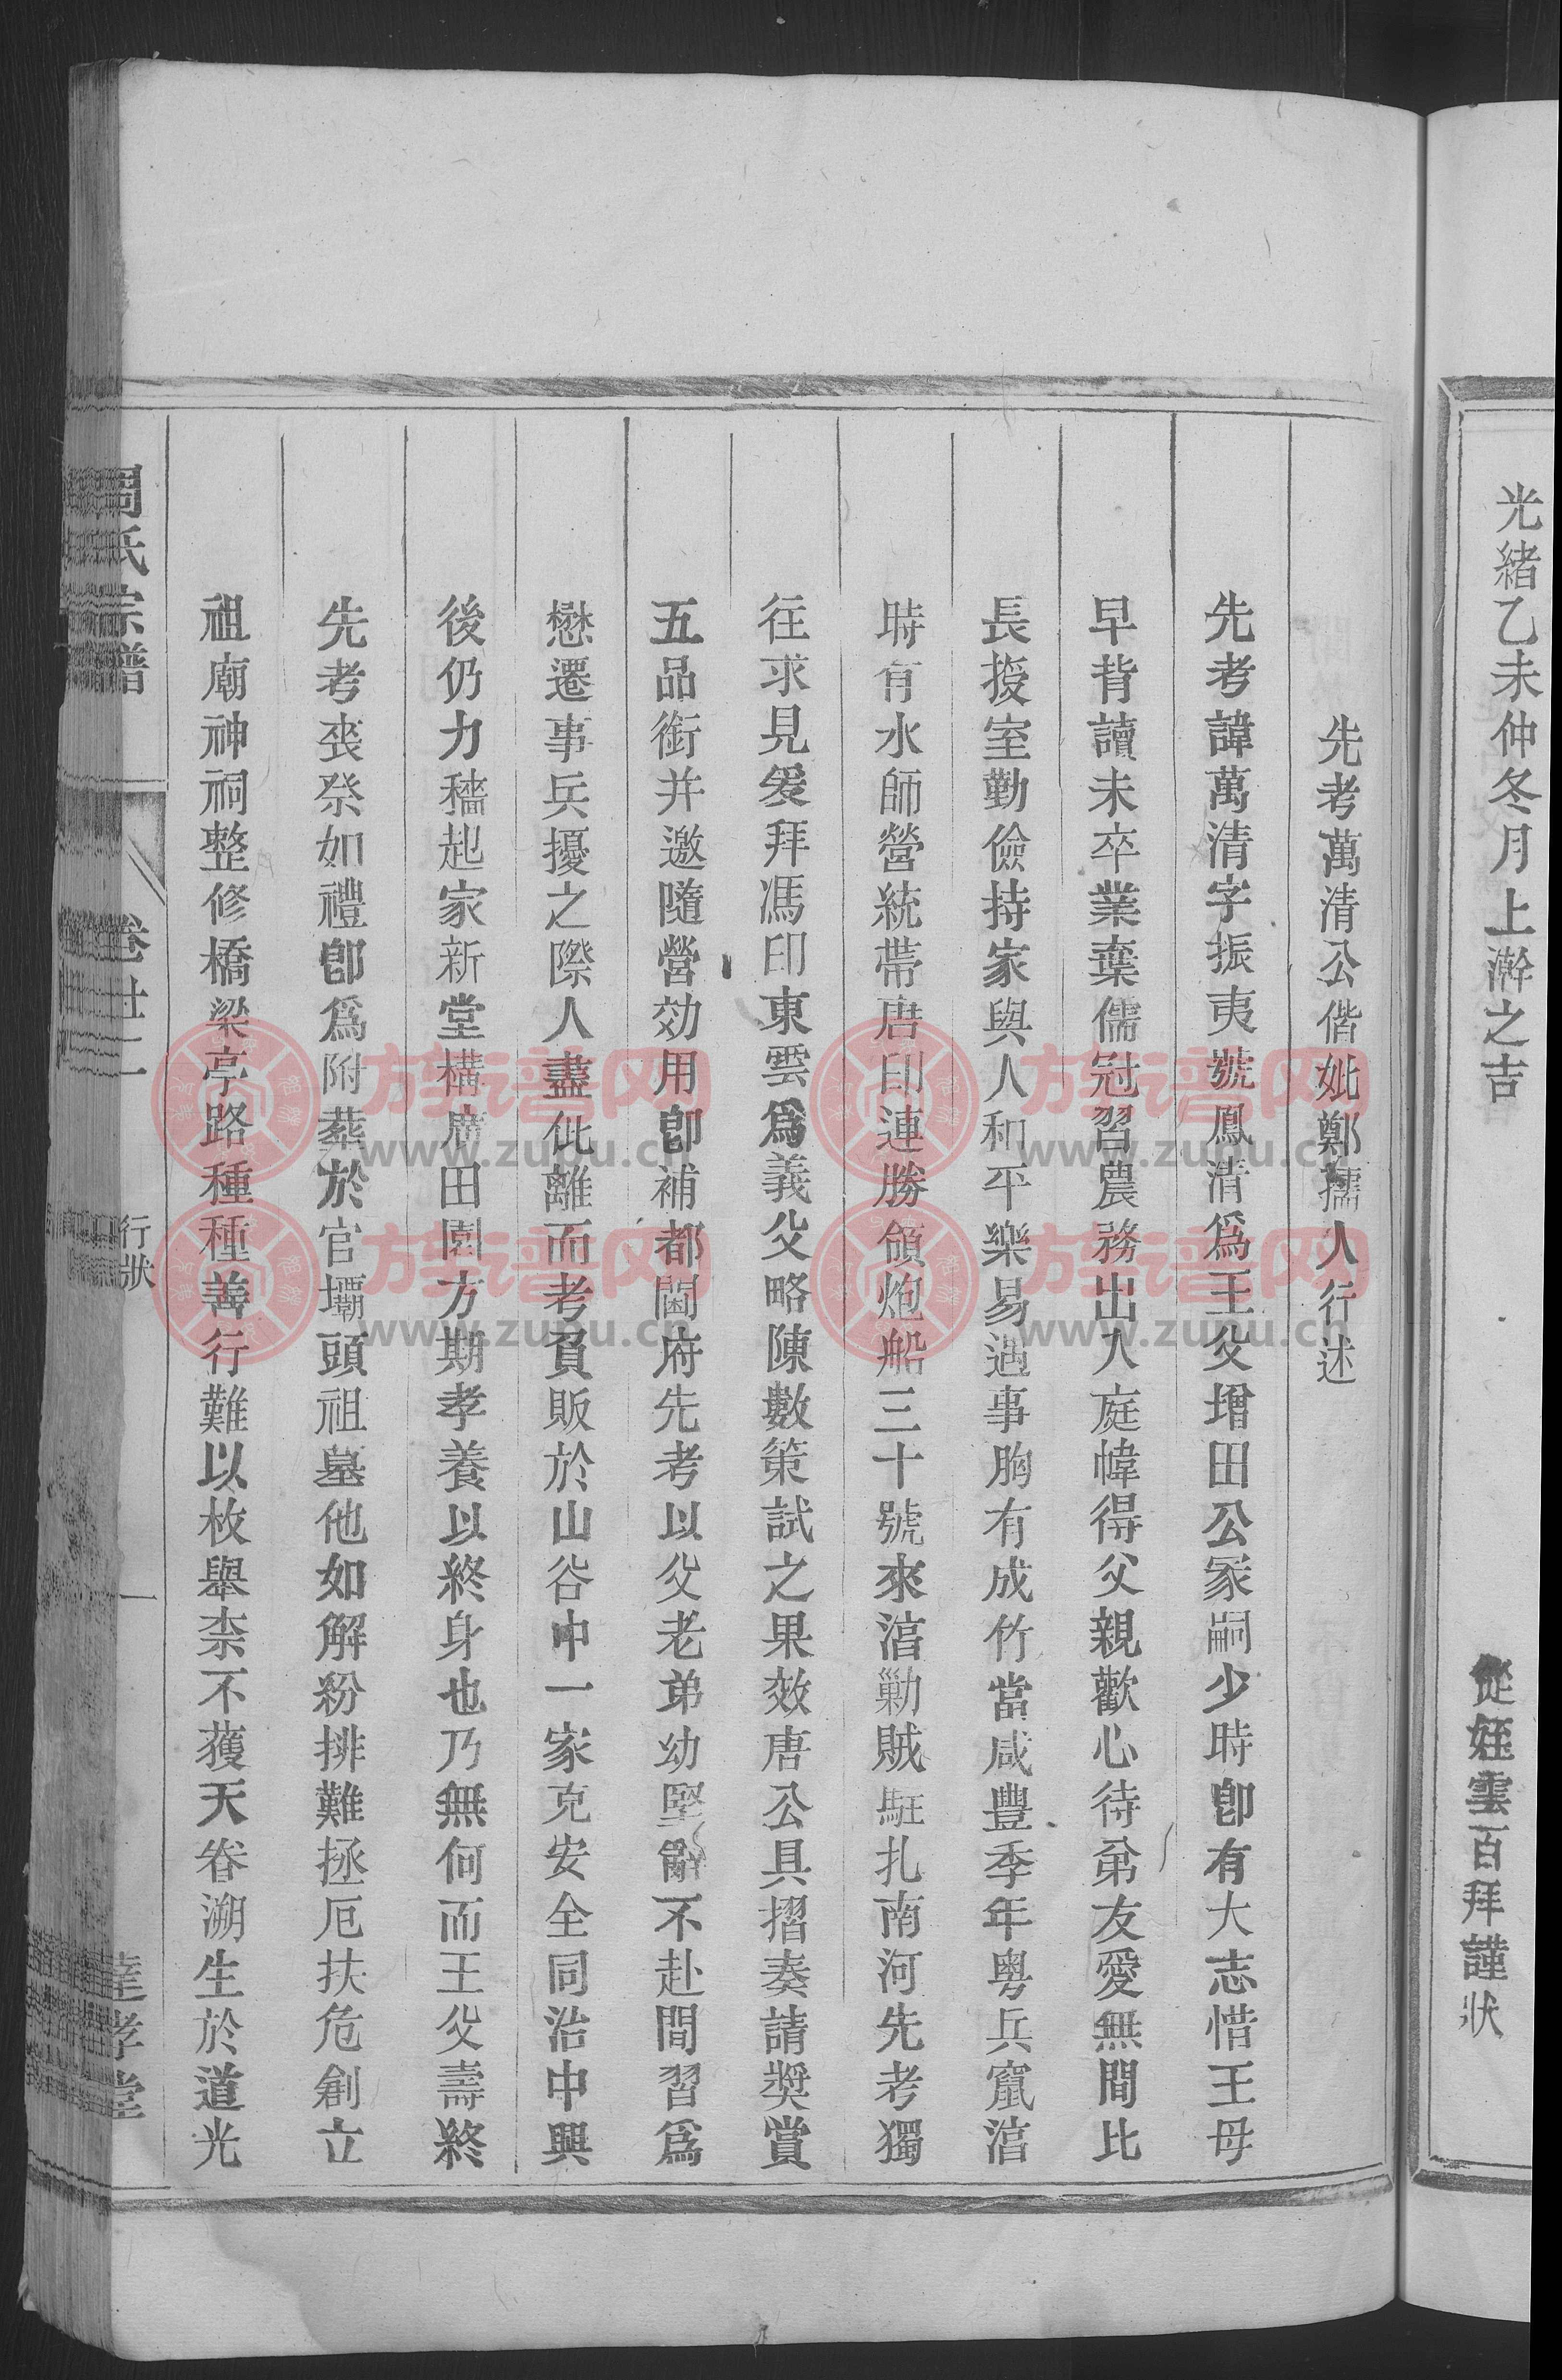 光緒乙未仲冬月上澣之吉
從姪雲百拜謹狀
先考萬清公偕妣鄭孺人行述
先考諱萬清字振夷號鳳清爲王父增田公冢嗣少時卽有大志惜王母
早背讀未卒業棄儒冠習農務出入庭幃得父親歡心待弟友愛無間比
長授室勤儉持家與人和平樂易遇事胸有成竹當咸豐季年粵兵竄涪
時有水師營統帶唐印連勝領炮船三十號來涪勦賊駐扎南河先考獨
往求見爰拜馮印東雲爲義父略陳數策試之果效唐公具摺奏請獎賞
五品銜并邀隨營効用卽補都閫府先考以父老弟幼堅辭不赴間習爲
懋遷事兵擾之際人盡仳離而考負販於山谷中一家克安全同治中興
後仍力穡起家新堂構廣田園方期孝養以終身也乃無何而王父壽終
先考喪祭如禮卽爲附葬於官壩頭祖墓他如解粉排難拯厄扶危創立
祖廟神祠整修橋梁亭路種種善行難以枚舉柰不獲天眷溯生於道光
周氏宗譜
卷卄二
行狀
一
達孝堂
族譜网
www.zupu.cn
族譜网
www.zupu.cn
族譜网
www.zupu.cn
族譜网
www.zupu.cn